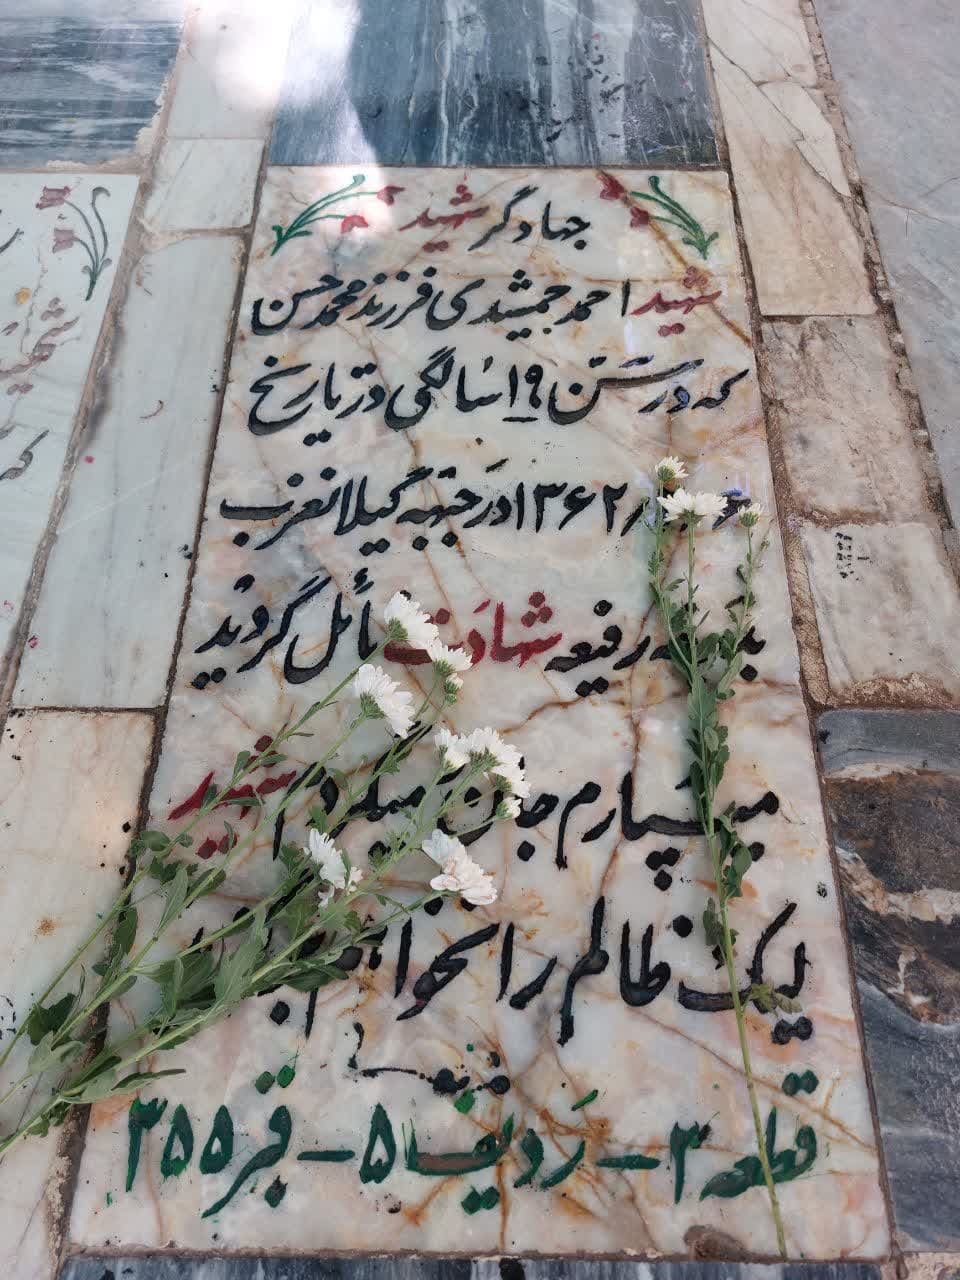 جهادگر شهید
شهید احمد جمشیدی فرزند محمدحسن
که در سن ۱۹ سالگی در تاریخ
۱۳۶۲ در جبهه گیلانغرب
رفیعه شهادت نائل گردید
میسپارم جان شهید
لیک ظالم را نخواهم
قطعه ۳ - ردیف ۵ - قبر ۳۵۵